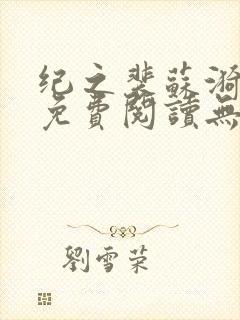 纪之裴蘇漪
免費閱讀無
劉雪荣